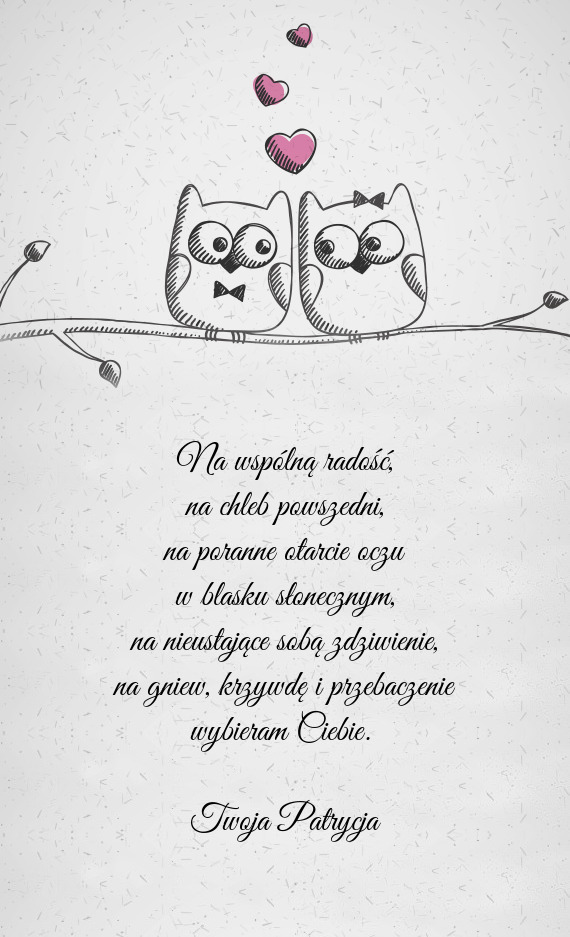 Na wspólną radość,
na chleb powszedni,
na poranne otarcie oczu
w blasku słonecznym,
na nieustające sobą zdziwienie,
na gniew, krzywdę i przebaczenie
wybieram Ciebie.
Twoja Patrycja